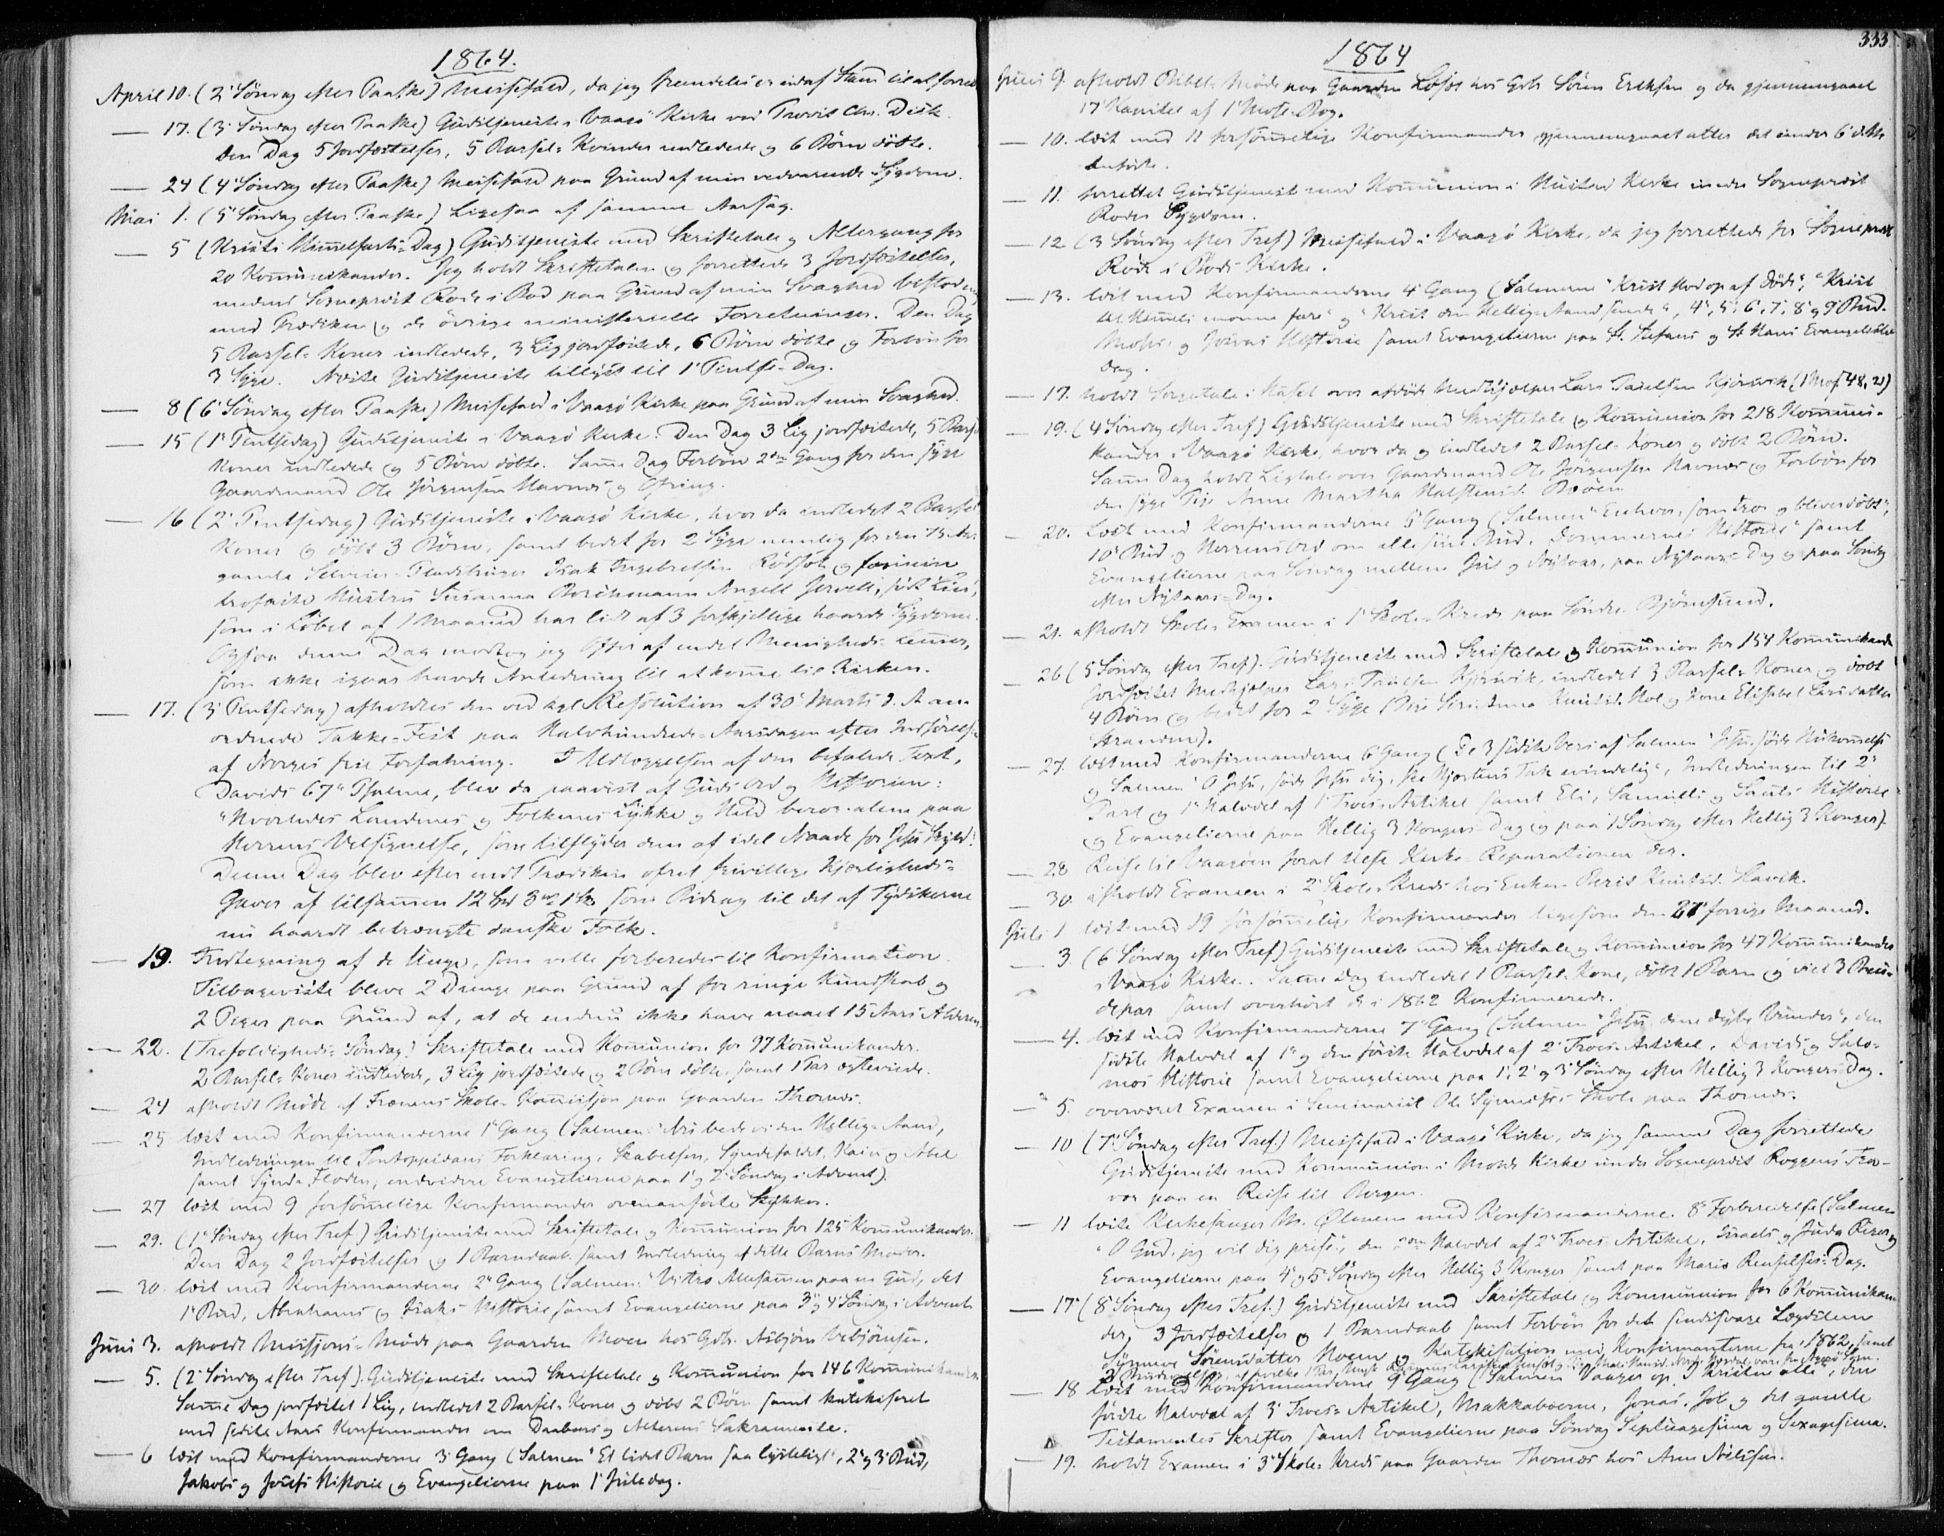 1864.
April 10. (2' Söndag efter Paaske) Messefald, da jeg fremdeles er ud af Stand til at forrette
— 17. (3' Söndag efter Paaske) Gudstjeneste i Vaagö Kirke ved Provst Chr.
Den Dag 5 Jordfæstelser, 5 Barsel-Kvinder indledede og 6 Börn döbte.
— 24 (4' Söndag efter Paaske) Messefald paa Grund af min vedvarende Sygdom.
Mai 1. (5' Söndag efter Paaske) Ligesaa af samme Aarsag.
— 5 (Kristi Himmelfarts-Dag) Gudstjeneste med Skriftetale og Altergang for
20 Kommunikander. Jeg holdt Skriftetalen og forrettede 3 Jordfæstelser,
medens Sogneprest Rode i Bod paa Grund af min Svaghed bestod
med Prædiken og de övrige ministerielle Forretninger. Den Dag
5 Barsel-Koner indledede, 3 Lig jordfæstede, 6 Börn döbte og Forbön for
3 Syge. Næste Gudstjeneste tillyst til 1' Pintse-Dag.
— 8 (6' Söndag efter Paaske) Messefald i Vaagö Kirke paa Grund af min Svaghed.
— 15 (1' Pintsedag) Gudstjeneste i Vaagö Kirke. Den Dag 3 Lig jordfæstede, 5 Barsel-
Koner indledede og 5 Börn döbte. Samme Dag Forbön 2den Gang for den syge
Gaardmand Ole Jörgensen Havnæs og Ofring.
— 16 (2' Pintsedag) Gudstjeneste i Vaagö Kirke, hvor da indledet 2 Barsel-
Koner og döbt 3 Börn, samt bedet for 2 Syge nemlig for den
gamle Selveier-Pladsbruger Isak Ingebretsen Rödsot og for min
trofaste Hustru Susanna Angell Jervell, født
som i Löbet af 1 Maaned har lidt af 3 forskjellige haarde Sygdomme.
Ogsaa denne Dag modtog jeg Offer af endel Menigheds-Lemmer,
som ikke igaar havde Anledning til at komme til Kirken.
— 17. (3' Pintsedag) afholdtes den ved kgl. Resolution af 30' Marts d. A. an-
ordnede Takke-Fest paa Halvhundrede-Aarsdagen efter Indförelsen
af Norges frie Forfatning. I Udlæggelsen af den befalede Text,
Davids 67' Psalme, blev da paavist af Guds Ord og Historien:
"Hvorledes Landenes og Folkenes Lykke og Held beror alene paa
Herrens Velsignelse, som tilflyder dem af idel Naade for Jesu Skyld".
Denne Dag blev efter endt Prædiken ofret frivillige Kjærligheds-
Gaver af tilsammen 12 Spd 3 Ort 1 Sk. som Bidrag til det af Tydskerne
nu haardt betrængte danske Folk.
— 19. Indtegning af de Unge, som ville forberedes til Konfirmation.
Tilbageviste bleve 2 Drenge paa Grund af for ringe Kundskab og
2 Piger paa Grund af, at de endnu ikke have naaet 15 Aars Alderen.
— 22. (Trefoldigheds-Söndag) Skriftetale med Kommunion for 97 Kommunikander.
2 Barsel-Koner indledede, 3 Lig jordfæstede og 2 Börn döbte, samt 1 Par ægteviede.
— 24 afholdt Möde af Frænens Skole-Kommission paa Gaarden Thornæs.
— 25 læst med Konfirmanderne 1' Gang (Salmen: "Nu bede vi den Hellig-Aand,
Indledningen til Pontoppidans Forklaring, Skabelsen, Syndefaldet, Kain og Abel
samt Synd-Floden, endvidere Evangelierne paa 1' og 2' Söndag i Advent).
— 27 læst med 9 forsömmelige Konfirmander ovenanförte Stykker.
— 29. (1' Söndag efter Tref.) Gudstjeneste med Skriftetale og Kommunion for 125 Kommunikander.
Den Dag 2 Jordfæstelser og 1 Barndaab samt Indledning af dette Barns Moder.
— 30. læst med Konfirmanderne 2' Gang (Salmen: "Vi tro Allesammen paa en Gud, det
1' Bud, Abrahams og Isaks Historie samt Evangelierne paa 3' og 4' Söndag i Advent.
Juni 3. afholdt Missions-Möde paa Gaarden Moen hos Gdb. Asbjörn Vebjörnsen.
— 5. (2' Söndag efter Tref.) Gudstjeneste med Skriftetale og Kommunion for 146 Kommunikander.
Samme Dag jordfæstet 1 Lig, indledet 2 Barsel-Koner og döbt 2 Börn samt katekiseret
med sidste Aars Konfirmander om Daabens og Alterens Sakramente.
— 6 læst med Konfirmanderne 3' Gang (Salmen "Et lidet Barn saa lysteligt", 2' og 3' Bud,
Jakobs og Josefs Historie og Evangelierne paa 1' Juledag.
1864
333
Juni 9. afholdt Bibel-Möde paa Gaarden Løset hos Gdb. Sören Eriksen og da gjennemgaaet
17' Kapitel af 1' Mose-Bog.
— 10. læst med 11 forsömmelige Konfirmander gjennemgaaet atter det under 6' dette
anförte.
— 11. forrettet Gudstjenest med Kommunion i Hustad Kirke under Sogneprest
Rodes Sygdom.
— 12 (3 Söndag efter Tref.) Messefald i Vaagö Kirke, da jeg forrettede for Sogneprest
Rode i Bods Kirke.
— 13. læst med Konfirmanderne 4' Gang (Salmerne "Krist stod op af Döde", "Krist
til Himmels monne fare" og "Krist den Hellig-Aand sende", 4', 5', 6', 7', 8' og 9' Bud.
Moses og Josvas Historie samt Evangelierne paa St. Stefans og St. Hans Evangelistes
Dag.
— 17. holdt Sorgetale i Huset over afdöde Medhjælper Lars Kjörsvik (1 Mos. 48, 21)
— 19. (4 Söndag efter Tref.) Gudstjeneste med Skriftetale og Kommunion for 218 Kommuni-
kander i Vaagö Kirke, hvor da og indledet 2 Barsel-Koner og döbt 2 Börn.
Samme Dag holdt Ligtale over Gaardmand Ole Jörgensen Havnæs og Forbön for
den syge Pige Anne Martha Halstensd. Bøen
— 20. Læst med Konfirmanderne 5' Gang (Salmen "Enhver, som tror og bliver döbt",
10' Bud og Herrens Ord om alle sine Bud, Dommernes Historie samt
Evangelierne paa Söndag mellem Jul og Nytaar, paa Nytaars-Dag og paa Söndag
efter Nytaars-Dag.
— 21. afholdt Skole-Examen i 1' Skole-Kreds paa Söndre Björnsund.
— 26 (5 Söndag efter Tref.) Gudstjeneste med Skriftetale og Kommunion for 154 Kommunikander
Jordfæstet Medhjælper Lars Kjörsvik, indledet 3 Barsel-Koner og döbt
4 Börn og bedet for 2 Syge (Pige Anna Knutsd. Hol og Kone Elisabet Larsdatter
Stranden).
— 27. læst med Konfirmanderne 6' Gang (De 3 sidste Vers af Salmen "Jesu, söde Hukommelse
og Salmen "O Jesu, söde Jesu dig, ske Hjertens Tak evindelig", Indledningen til 2'
Part og 1' Halvdel af 1' Troes-Artikel samt Eli, Samuels og Sauls Historie
og Evangelierne paa Hellig 3 Kongers Dag og paa 1' Söndag efter Hellig 3 Konger).
— 28 Reise til Vaagöen for at bese Kirke-Reparationen der.
— 30. afholdt Examen i 2' Skole-Kreds hos Enken Berit Knutsd. Havik.
Juli 1 læst med 19 forsömmelige Konfirmander ligesom den 27' forrige Maaned.
— 3. (6 Söndag efter Tref.) Gudstjeneste med Skriftetale og Kommunion for 47 Kommunikander
i Vaagö Kirke. Samme Dag indledet 1 Barsel-Kone, döbt 1 Barn og viet 3 Bru-
depar samt overhört de i 1862 Konfirmerede.
— 4. læst med Konfirmanderne 7' Gang (Salmen "Jesu, dine dybe Vunder", den
sidste Halvdel af 1' og den förste Halvdel af 2' Troes-Artikel, Davids og Salo-
mos Historie samt Evangelierne paa 1', 2' og 3' Söndag efter Hellig 3 Kongers Dag.
— 5. overværet Examen i Seminarist Ole Skole paa Thornæs.
— 10 (7' Söndag efter Tref.) Messefald i Vaagö Kirke, da jeg samme Dag forrettede
Gudstjeneste med Kommunion i Molde Kirke under Sogneprest Roggens Fra-
vær paa en Reise til Bergen.
— 11 læste Kirkesanger M. Ølmem med Konfirmanderne. 8' Forberedelse (Salmen
"O Gud, jeg vil dig prise", den 2den Halvdel af 2' Troes-Artikel, Israels og Juda Riger og
Evangelierne paa 4' og 5' Söndag efter Hellig 3 Konger samt paa Mariæ Renselses-Dag.
— 17 (8' Söndag efter Tref.) Gudstjeneste med Skriftetale og Kommunion for 6 Kommunikan-
der, 3 Jordfæstelser og 1 Barndaab samt Forbön for det sindssvage Lægdslem
Synneve Sörensdatter Moen og Katekisation med Konfirmanterne fra 1862, samt
— 18 læst med Konfirmanderne 9' Gang (Salmen "Vaager op, I Kristne alle", den
förste Halvdel af 3' Troes-Artikel, Makkabæerne, Jonas, Job og det gamle
Testamentes Skrifter samt Evangelierne paa Söndag Septuagesima og Sexagesima.
— 19. holdt Examen i 3' Skole-Kreds paa Gaarden Thornæs hos Arn Nilssen.